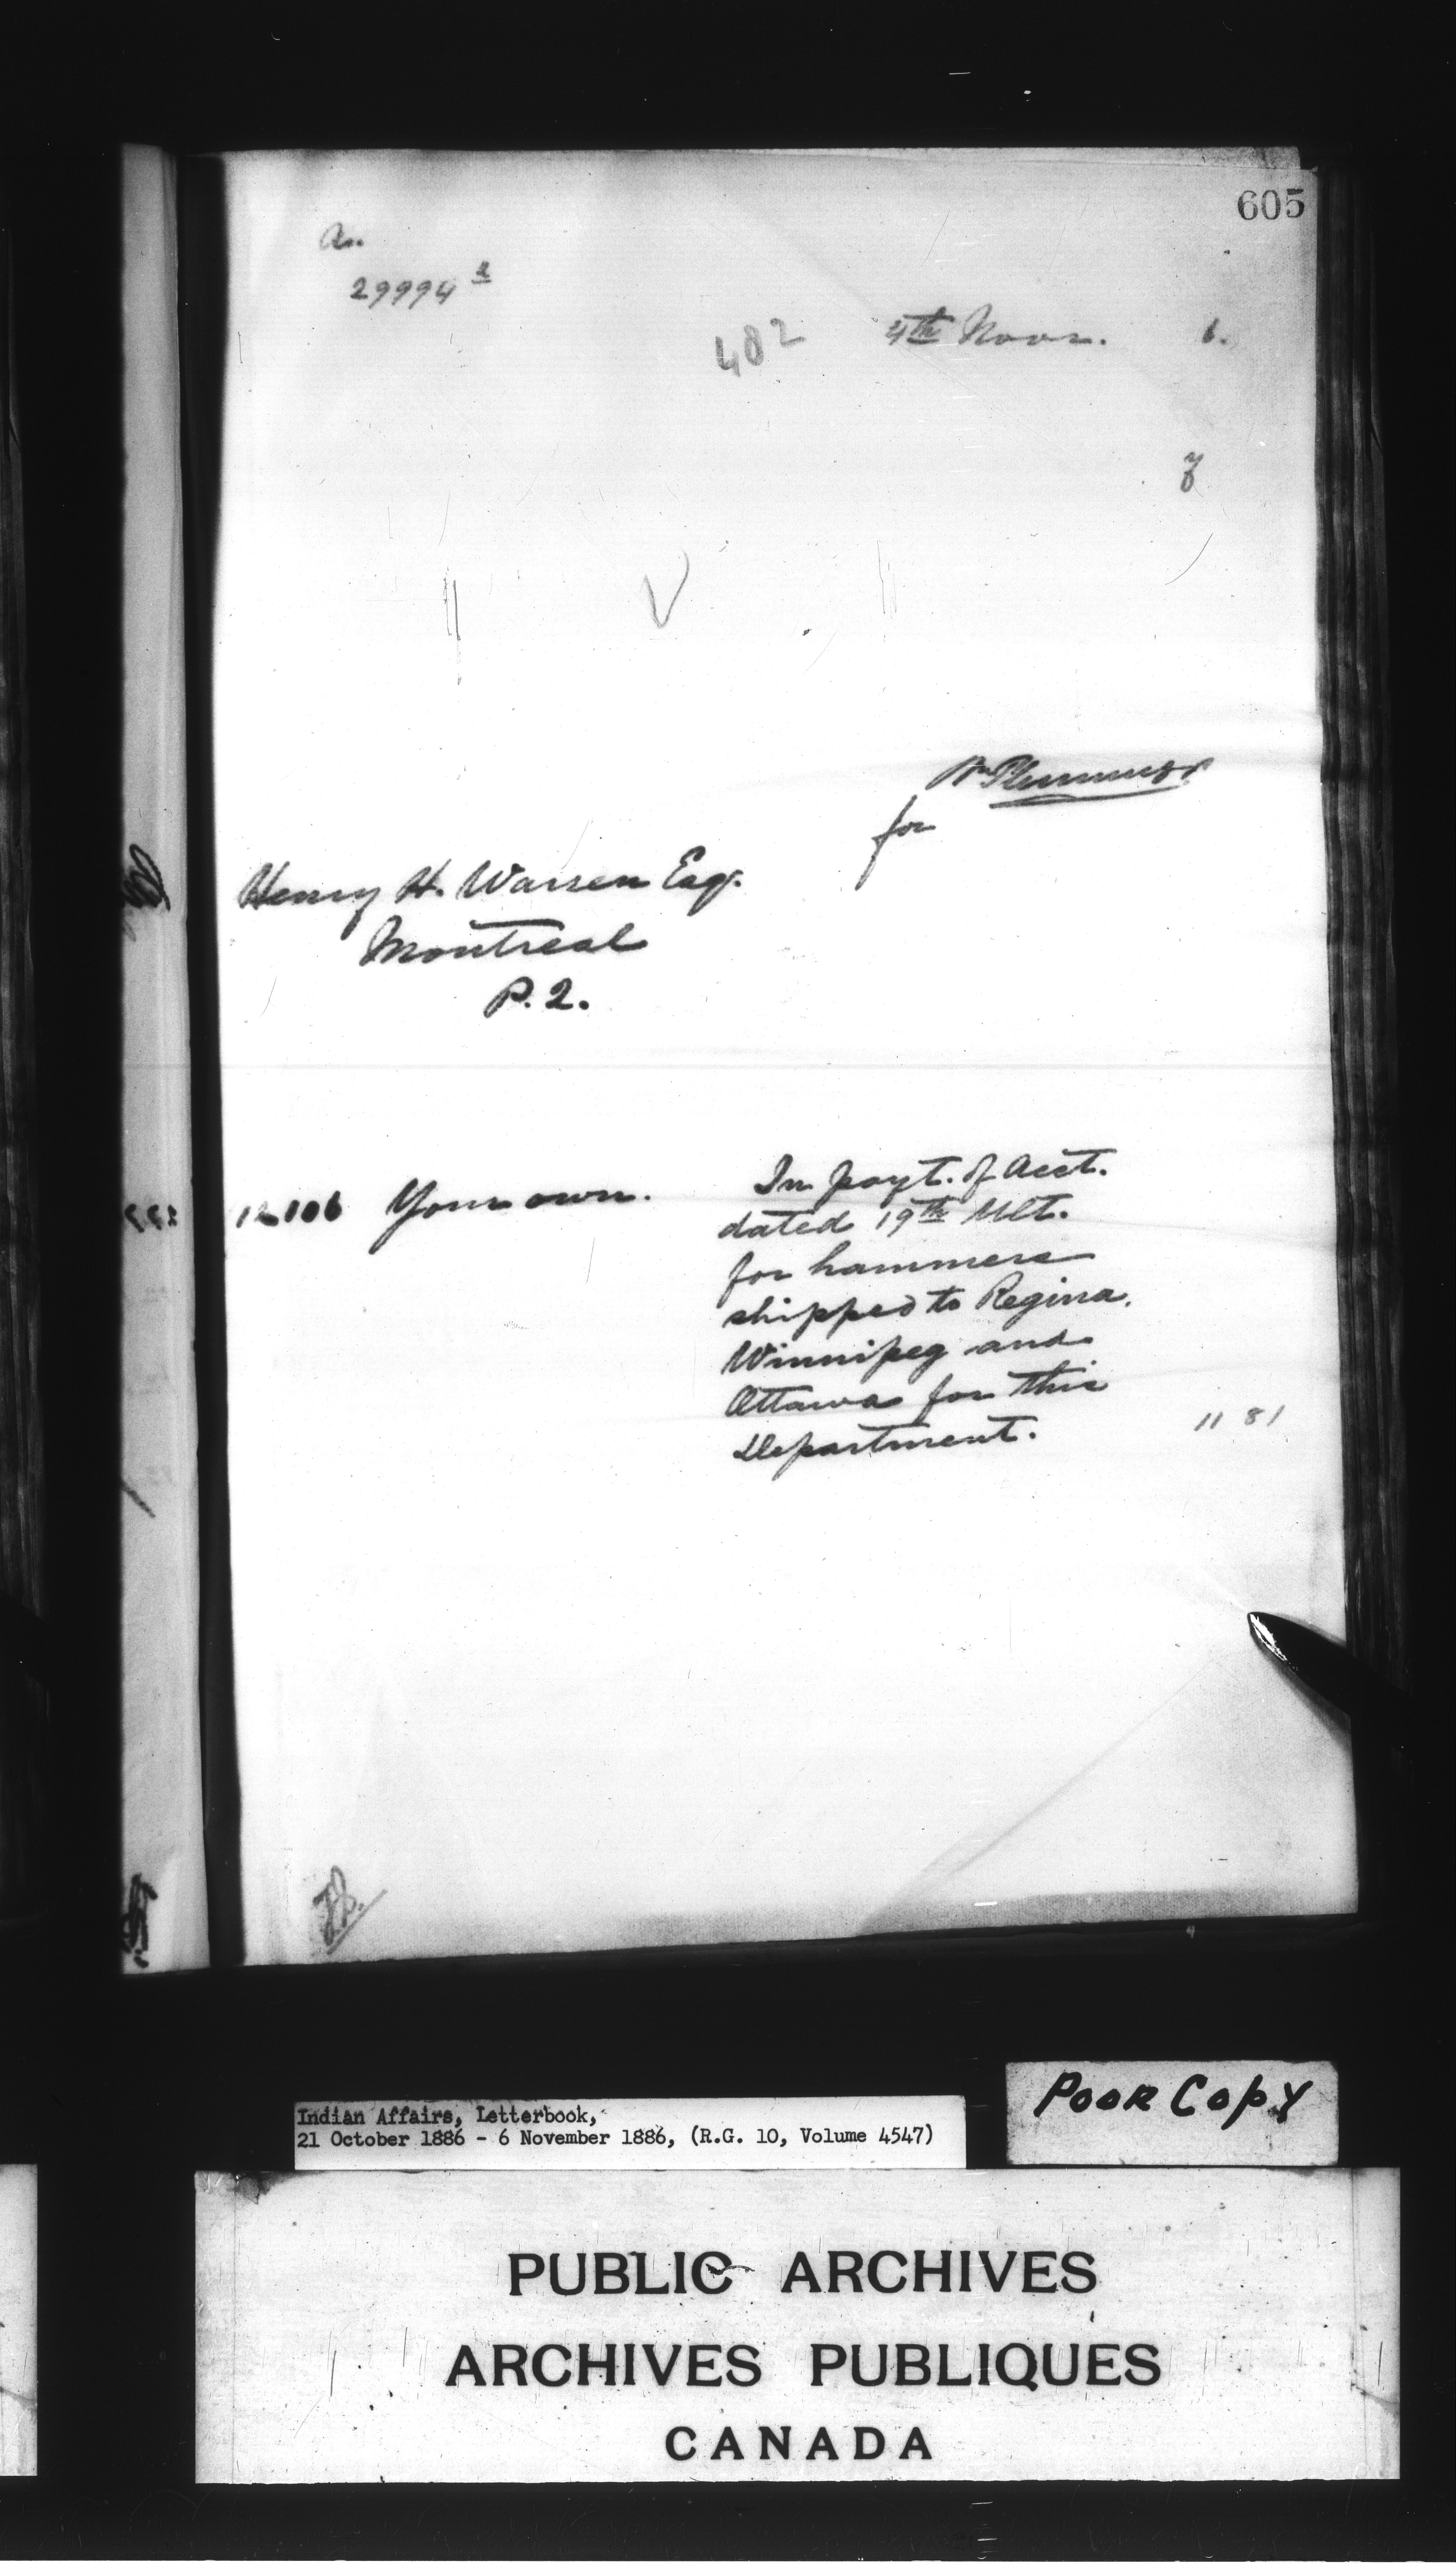 605
An.
29994
482 4th Novr. 6.
Wm Plummer
for
Henry H. Warren Esq.
Montreal
P. Q.
In payt. of Acct.
12106 Your own.
dated 19th Ult.
for hammers
shipped to Regina,
Winnipeg and
Ottawa for this
Department. 11 81
Indian Affairs, Letterbook,
21 October 1886 - 6 November 1886, (R.G. 10, Volume 4547)
POOR COPY
PUBLIC ARCHIVES
ARCHIVES PUBLIQUES
CANADA